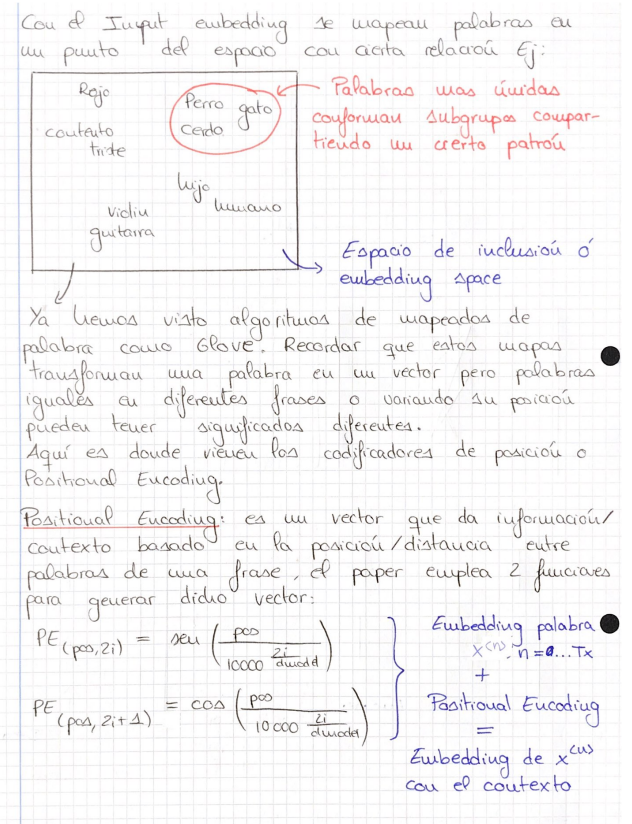 Con el Input embedding se mapean palabras en
un punto del espacio con cierta relación Ej:
Rojo
contento
triste
Perro gato
Cerdo
hijo
humano
violin
guitarra
Palabras mas únidas
conforman subgrupos compar-
tiendo un cierto patrón
Espacio de inclusión ó
embedding space
Ya hemos visto algoritmos de mapeados de
palabra como Glove. Recordar que estos mapas
transforman una palabra en un vector pero palabras
iguales en diferentes frases o variando su posición
pueden tener significados diferentes.
Aquí es donde vienen los codificadores de posición o
Positional Encoding.
Positional Encoding: es un vector que da información/
contexto basado en la posición/distancia entre
palabras de una frase, el paper emplea 2 funciones
para generar dicho vector:
PE(pos,2i) = sen (pos / 10000 2i/dmodel)
PE(pos, 2i+1) = cos (pos / 10000 2i/dmodel)
Embedding palabra
x<n> n = 0...Tx
+
Positional Encoding
=
Embedding de x<n>
con el contexto